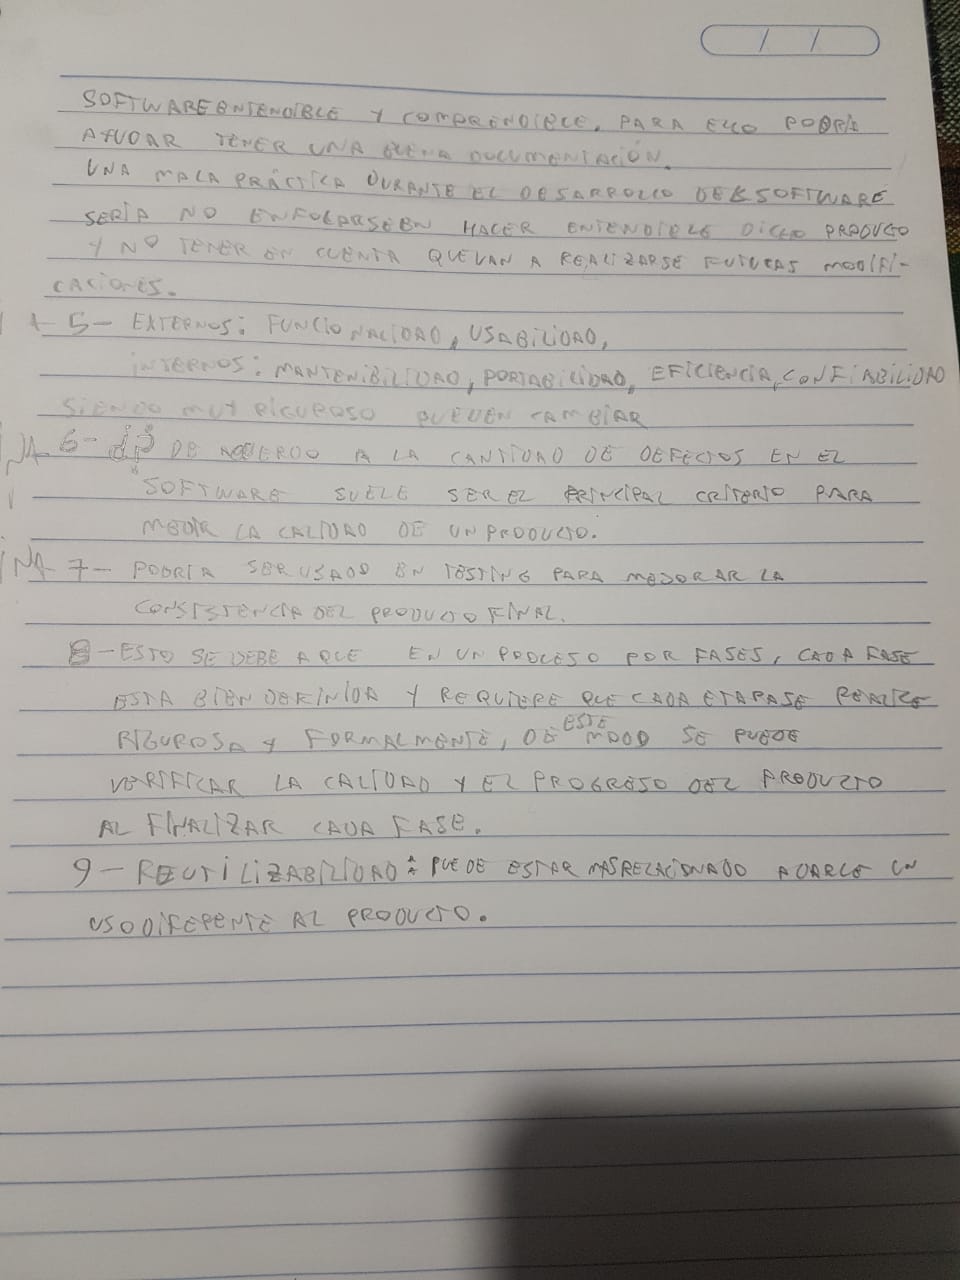 / /
SOFTWARE ENTENDIBLE Y COMPRENDIBLE, PARA ELLO PODRIA
AYUDAR TENER UNA BUENA DOCUMENTACIÓN.
UNA MALA PRÁCTICA DURANTE EL DESARROLLO DEL SOFTWARE
SERÍA NO ENFOCARSE EN HACER ENTENDIBLE DICHO PRODUCTO
Y NO TENER EN CUENTA QUE VAN A REALIZARSE FUTURAS MODIFI-
CACIONES.
5- EXTERNOS: FUNCIONALIDAD, USABILIDAD,
INTERNOS: MANTENIBILIDAD, PORTABILIDAD, EFICIENCIA, CONFIABILIDAD
SIENDO MUY RIGUROSO PUEDEN CAMBIAR
6- DE ACUERDO A LA CANTIDAD DE DEFECTOS EN EL
SOFTWARE SUELE SER EL PRINCIPAL CRITERIO PARA
MEDIR LA CALIDAD DE UN PRODUCTO.
7- PODRIA SER USADO EN TESTING PARA MEJORAR LA
CONSISTENCIA DEL PRODUCTO FINAL.
8- ESTO SE DEBE A QUE EN UN PROCESO POR FASES, CADA FASE
ESTA BIEN DEFINIDA Y REQUIERE QUE CADA ETAPA SE REALICE
RIGUROSA Y FORMALMENTE, DE ESTE MODO SE PUEDE
VERIFICAR LA CALIDAD Y EL PROGRESO DEL PRODUCTO
AL FINALIZAR CADA FASE.
9- REUTILIZABILIDAD: PUEDE ESTAR MAS RELACIONADO A DARLE UN
USO DIFERENTE AL PRODUCTO.